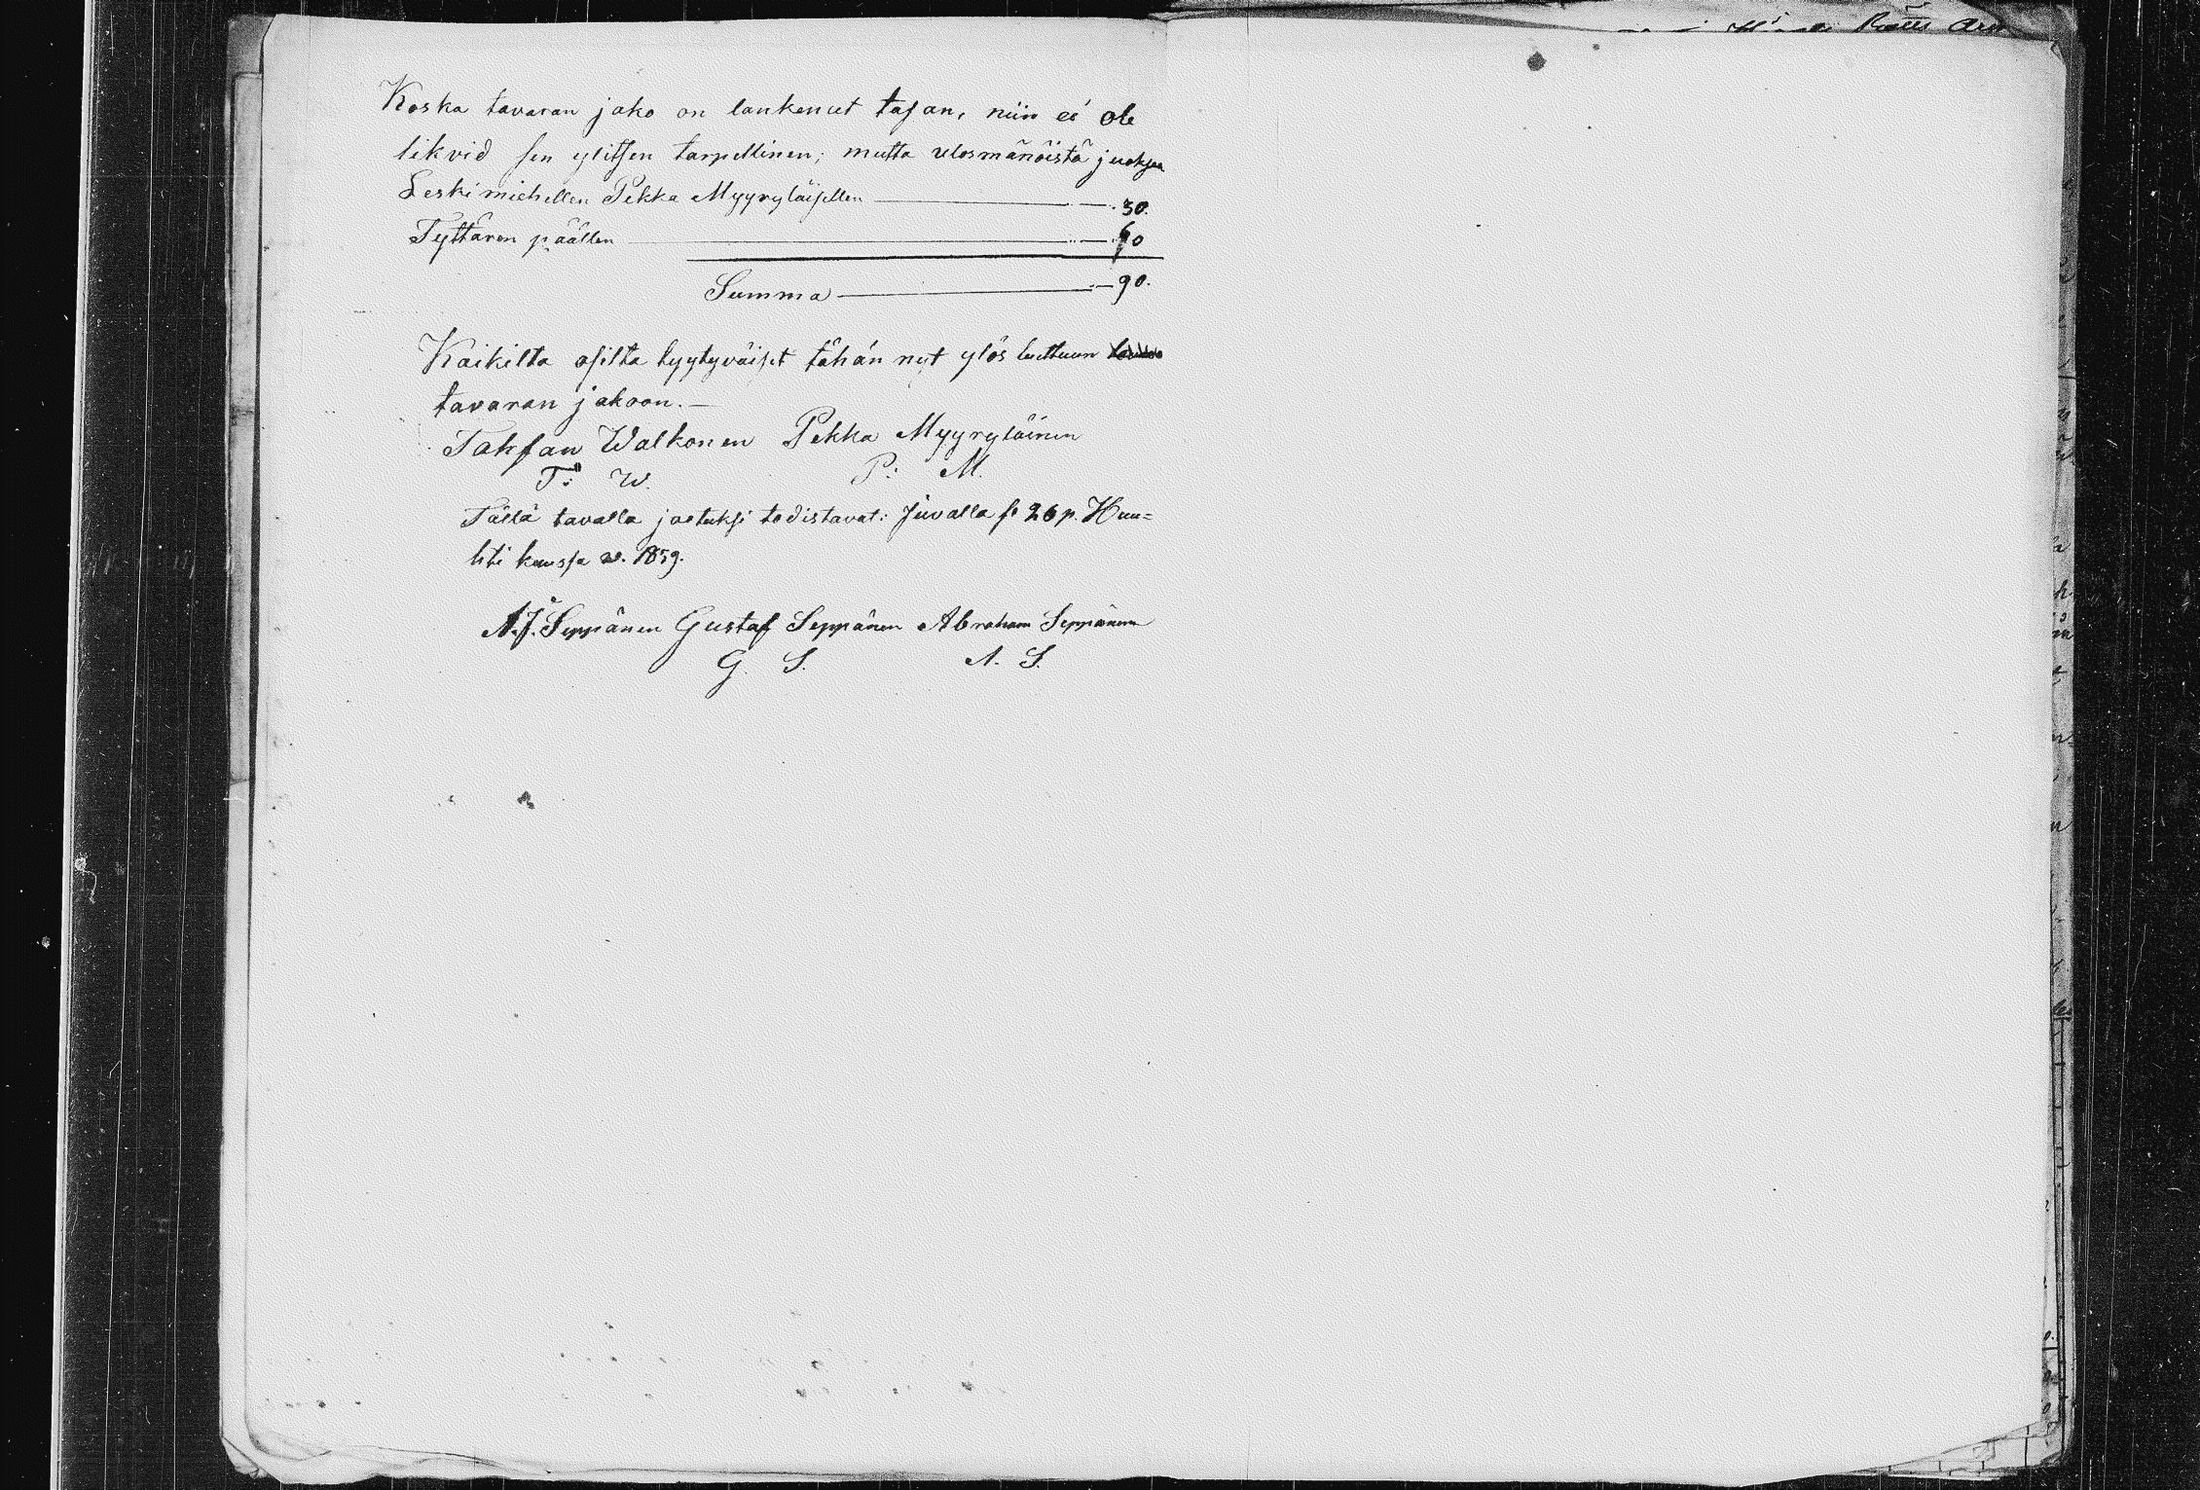 Koska tavaran jako on lankenut tasan, niin ei ole
likvid sen ylitsen tarpellinen; mutta ulosmänöistä juoksee
Leskimiehellen Pekka Myyryläisellen — 30.
Tyttären päällen — 60
Summa — 90.
Kaikilta osilta tyytyväiset tähän nyt ylös luettuun
tavaran jakoon.—
Tahfan Walkonen Pekka Myyryläinen
T: W. P: M.
Tällä tavalla jaetuksi todistavat: Juvalla se 26 p. Huu=
hti kuussa w. 1859.
A.J. Seppänen Gustaf Seppänen Abraham Seppänen
G. S. A. S.